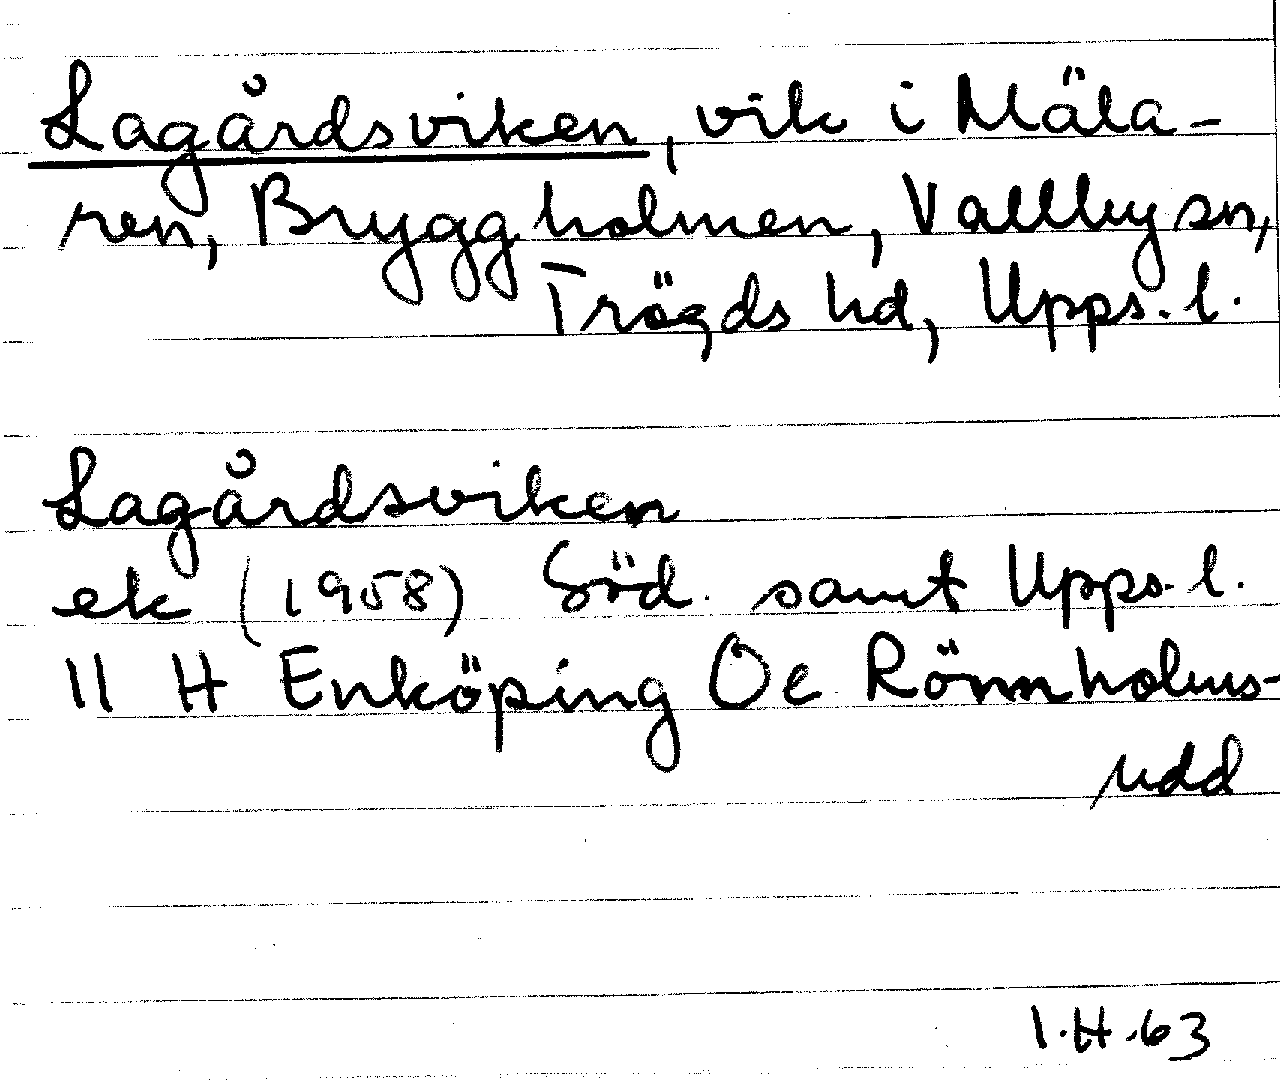 Lagårdsviken, vik i Mäla-
ren, Bryggholmen, Vallby sn,
Trögds hd, Upps. l.
Lagårdsviken
ek (1958) Söd. samt Upps. l.
11 H Enköping Oe Rönnholms-
udd
I.H.63